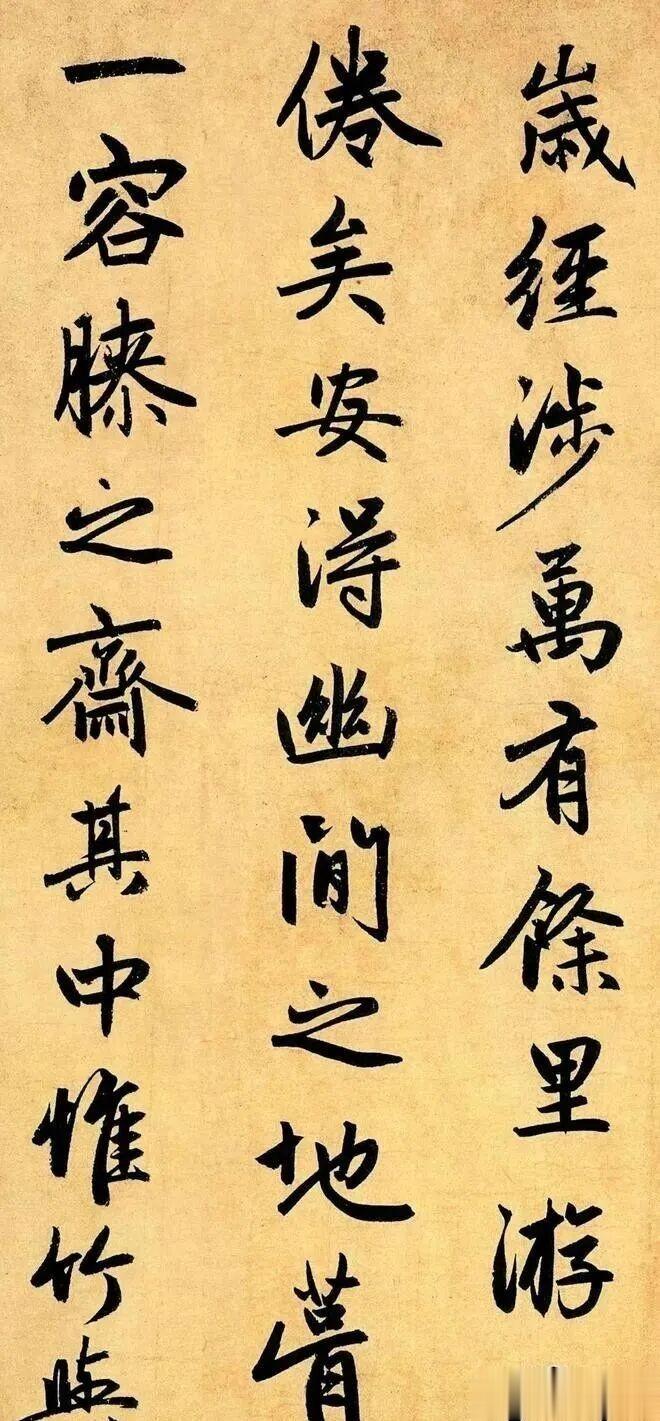 歲經涉萬有餘里游
倦矣安得幽閒之地
一容膝之齋其中惟竹與